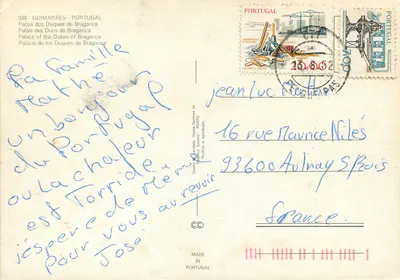 208 GUIMARÃES - PORTUGAL
Paços dos Duques de Bragança
Palais des Ducs de Bragança
Palace of the Dukes of Bragança
Palace de los Duques de Bragança
La famille
Mathé
un bonjour
du Portugal
ou la chaleur
est Torride
j'éspère de même
pour vous au revoir
José
PORTUGAL
jean luc
16 rue Maurice Nilés
93600 Aulnay S Bois
France
MADE
IN
PORTUGAL